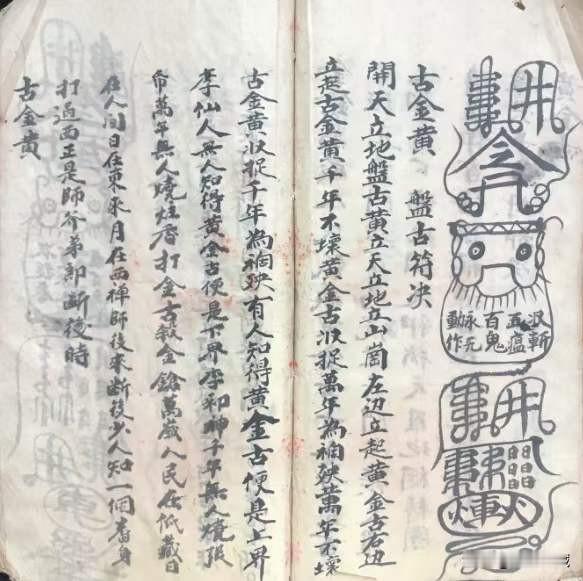 井
沢斬
五瘟
百鬼
永无
動作
井
古金黄 盤古符决
開天立地盤古黄立天立地立山崗左边立起黄金古右边
立起古金黄千年不壞黄金古収捉萬年為禍殃萬年不壞
古金黄収捉千年為禍殃有人知得黄金古便是上界
李仙人無人知得黄金古便是下界李和师千年無人燒張
帋萬年無人燒炷香打金古金鎗萬歲人民在低藏日
在人间日在東來月在西禅師後來断後少人知一個畨身
打過西正是師爷弟郎断後時
古金黄